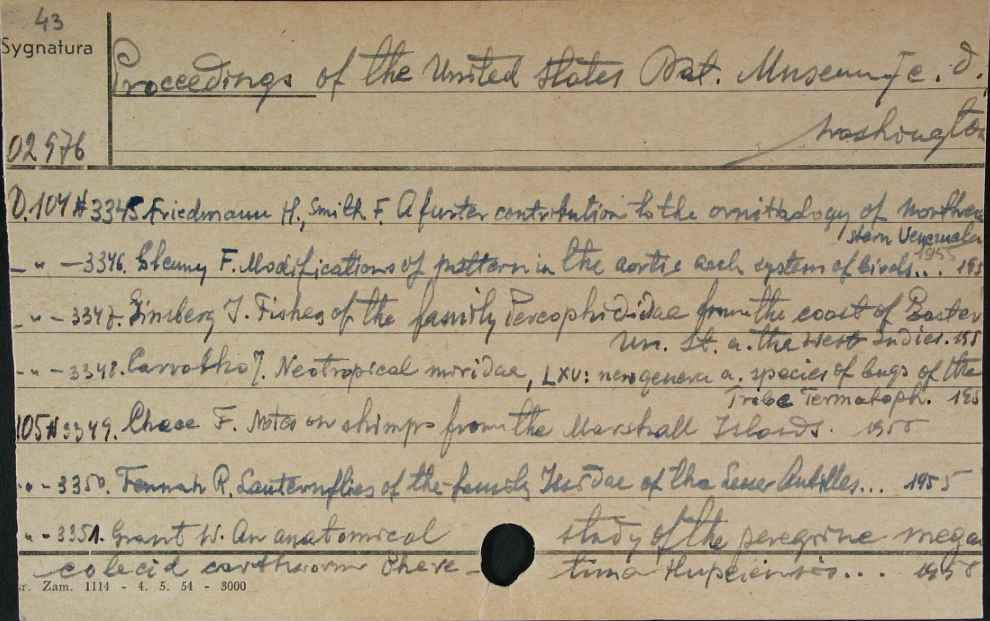 43
Sygnatura
Proceedings of the United States Nat. Museum
Washington
02976
D. 104 # 3345. Friedmann H., Smith F. A furter contribution to the ornithology of northea
stern Venezuela
1955
– " – 3346. Glenny F. Modifications of pattern in the aortic arch system of birds... 195
– " – 3347. Ginsberg I. Fishes of the family Percophididae from the coast of Easter
Un. St. a. the West Indies. 195
– " – 3348. Carvalho J. Neotropical miridae, LXV: new genera a. species of bugs of the
Tribe Termatoph. 195
105 # 3349. Chace F. Notes on shimps from the Marshall Islands. 1955
" - 3350. Fennah R. Lanternflies of the family Issidae of the Lesser Antilles... 1955
" - 3351. Grant W. An anatomical study of the peregrine mega
colecid earthworm Phere- tima Hupeiensis... 1955
r. Zam. 1114 - 4. 5. 54 - 3000